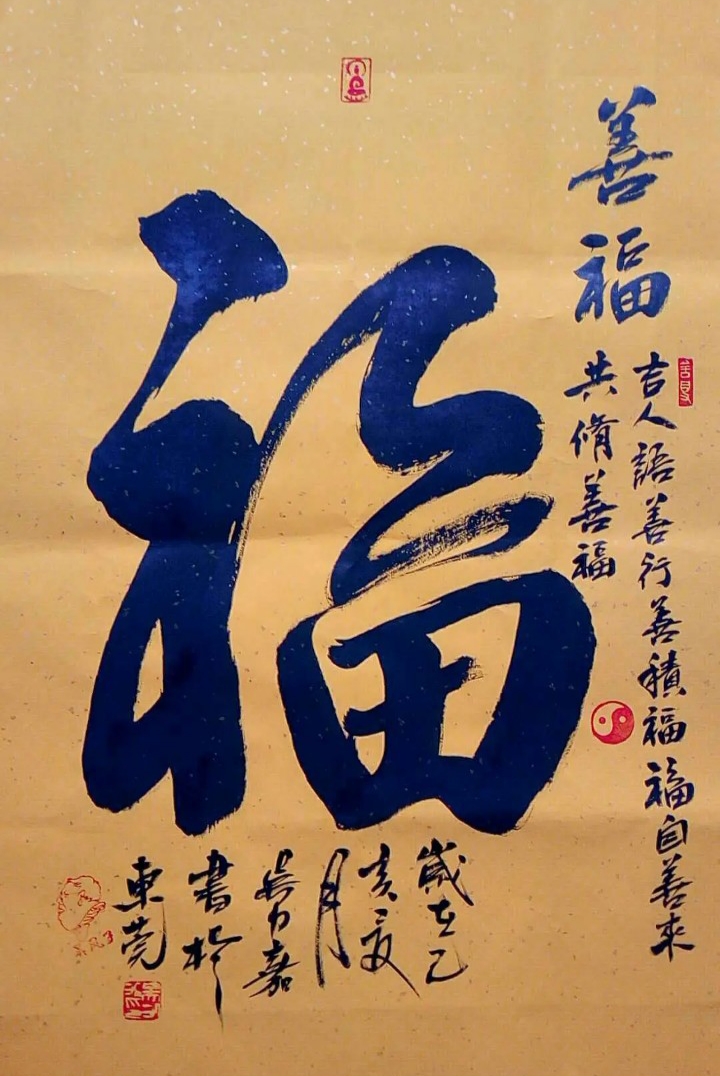 善福
吉人語善行善積福福自善來
共脩善福
福
歲在己
亥夏
月
吳力嘉
書於
東莞